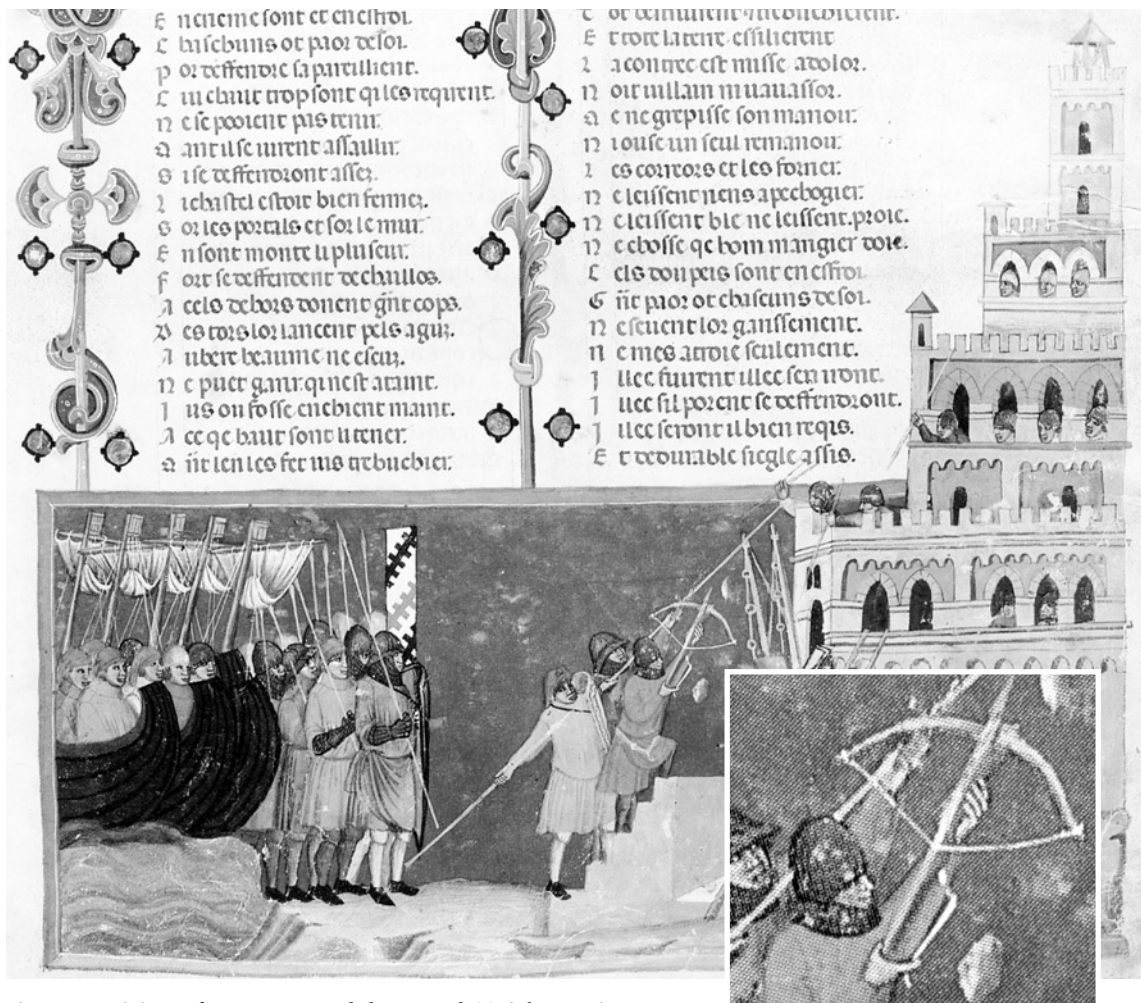 sont et en esfroi.
C haschuns ot paor de soi.
p or deffendre saparillient.
C ui chaut trop sont qi les reqirent.
N e se pooient pas tenir.
Q ant il se uirent assaillir.
S i se deffendront assez.
L i chastel estoit bien fermez.
S or les portals et sor le mur.
E n sont monte li pluseur.
F ort se deffendent de chaillos.
A cels dehors donent gñt cops.
D es tors lor lancent pels aguz.
A ubert heaume ne escuz.
N e puet garir qi nest ataint.
I us ou fosse enchient maint.
A ce qe haut sont li terrer.
Q ñt len les fet ius trebuchier.
E t tote la terre essilierent
L a contree est misse a dolor.
N oit uillain ni uauassor.
Q e ne grepisse son manoir.
N i ouse un seul remanoir.
L es coreors et les forrier.
N e leissent riens
N e leissent ble ne leissent proie.
N e chosse qe hom mangier doie.
C els dou peis sont en esfroi.
G ñt paor ot chascuns de soi.
N e seuent lor garissement.
N e mes atroie seulement.
I llec fuirent illec sen iront.
I llec sil porent se deffendront.
I llec seront il bien reqis.
E t de durable siegle assis.